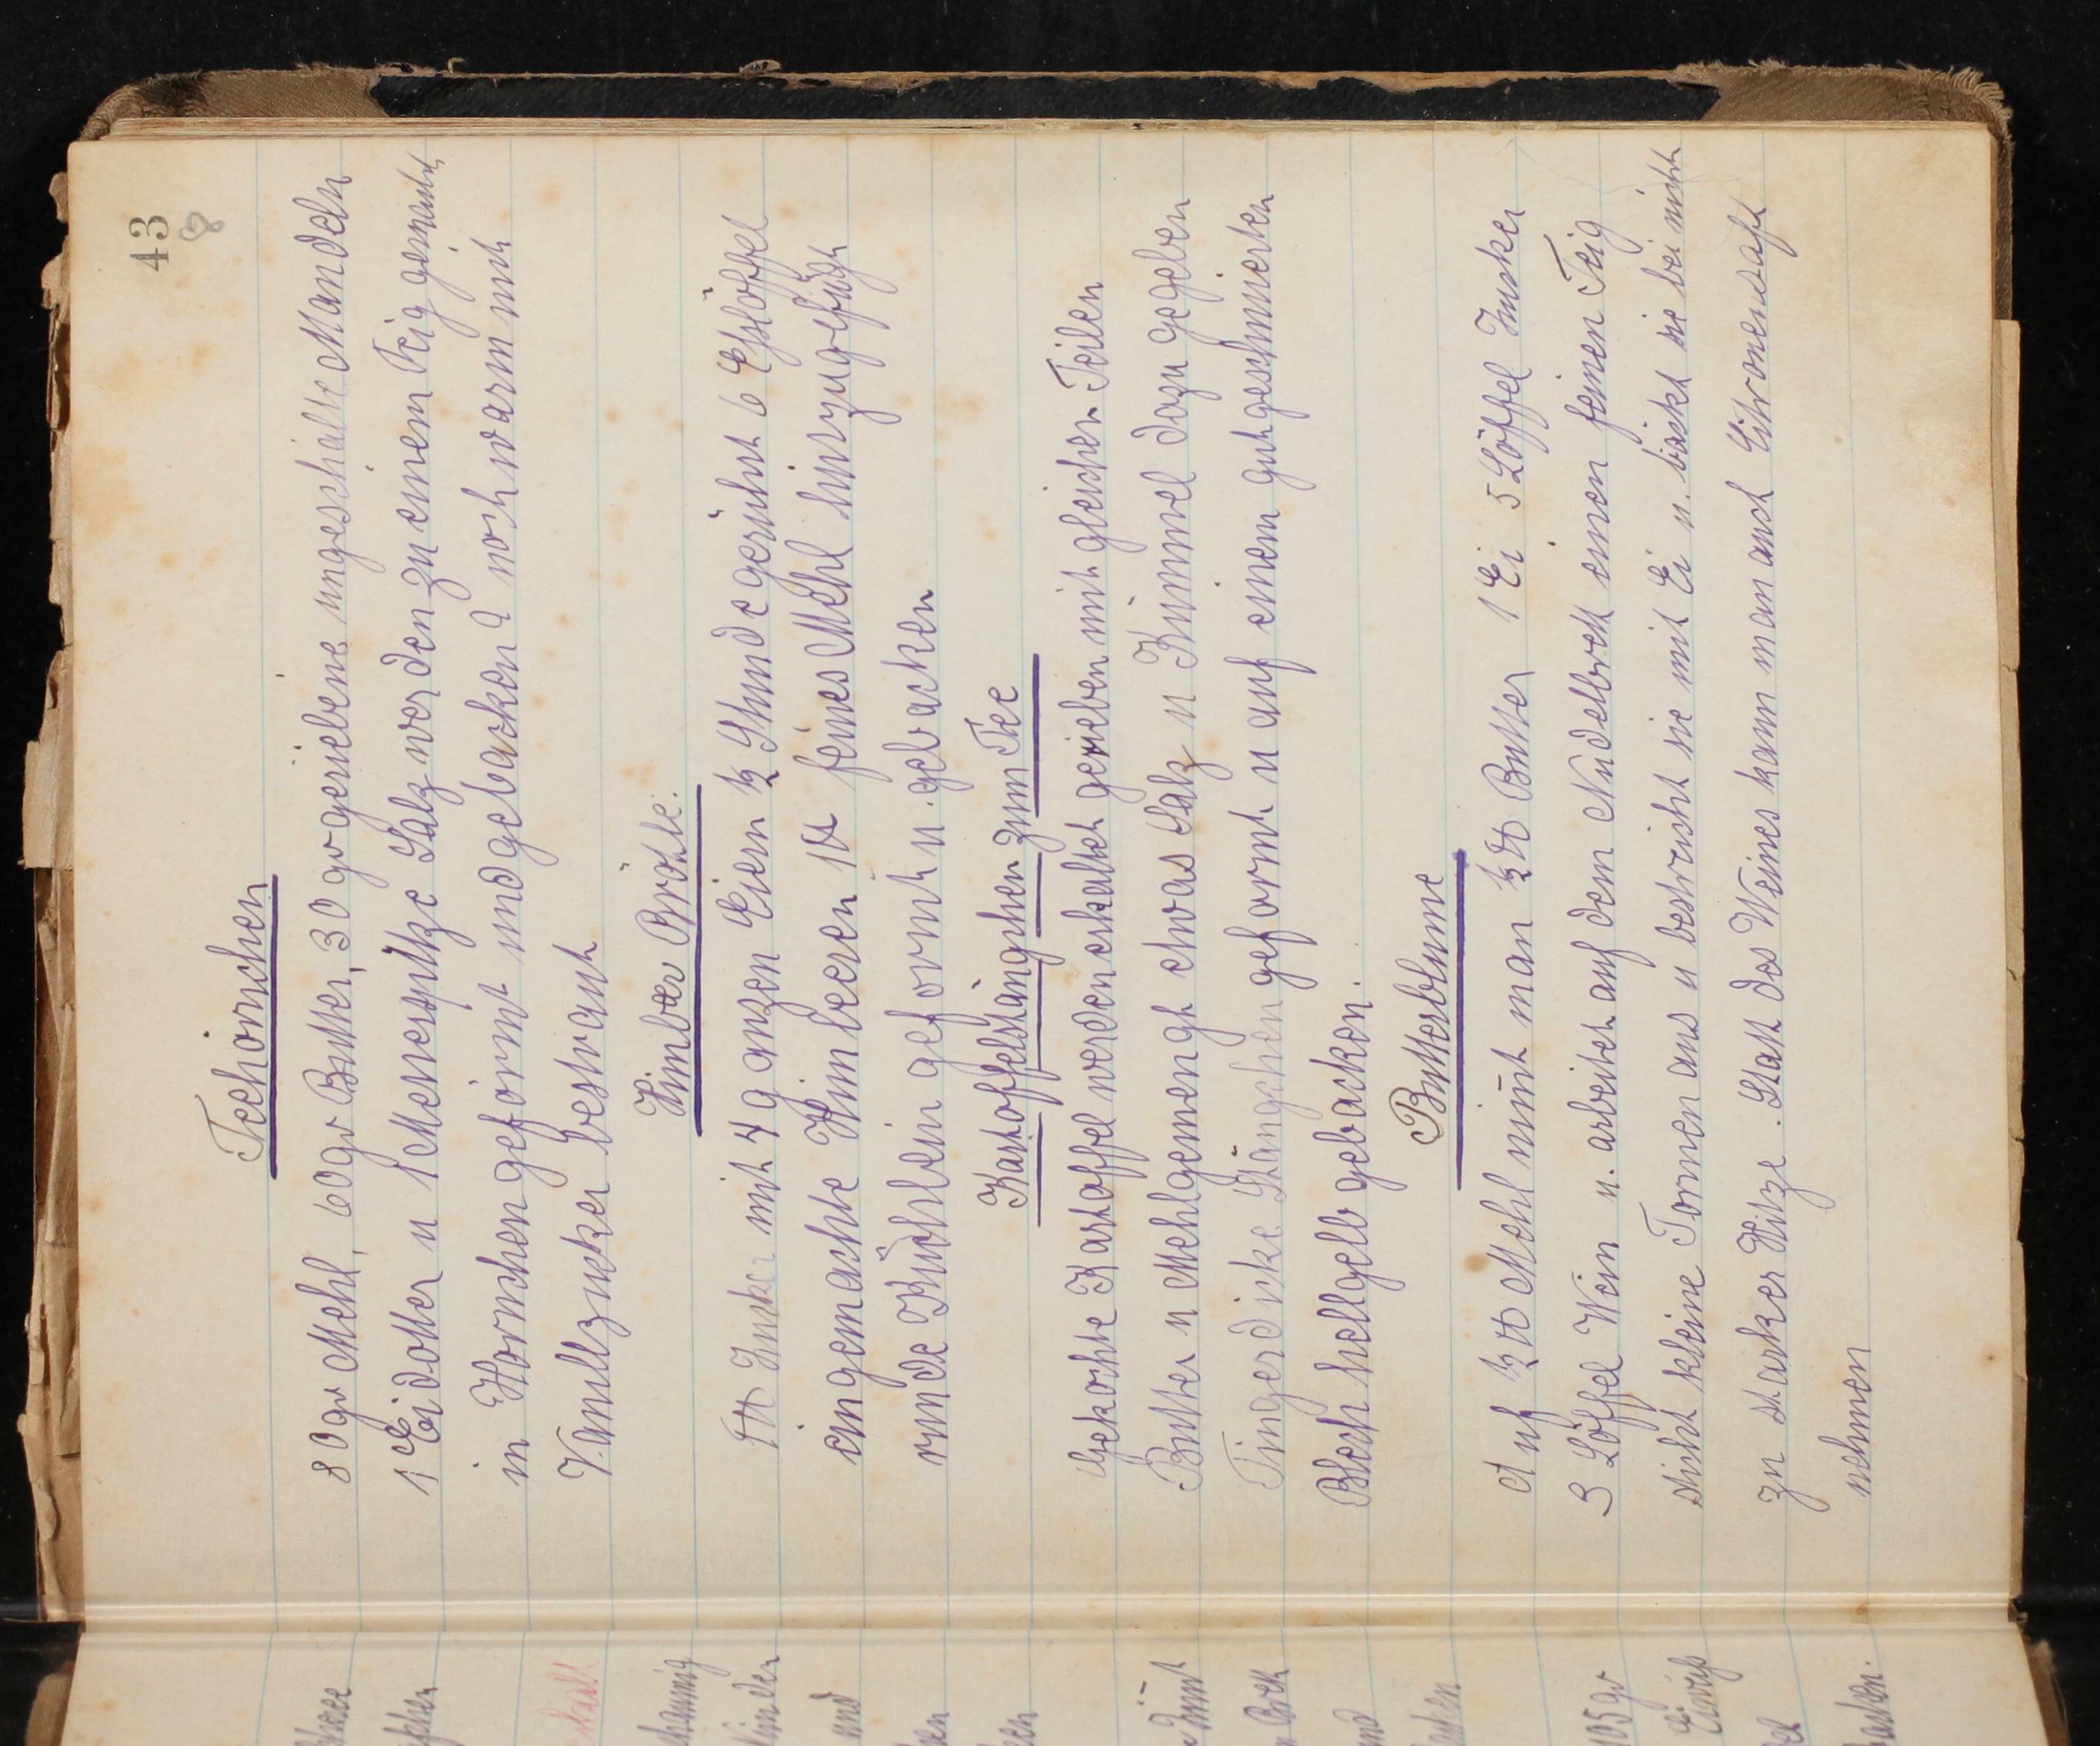 43
8
Teehörnchen
80gr Mehl, 60gr Butter, 30 gr geriebene ungeschälte Mandeln
1 Eidotter u 1 Messerspitze Salz werden zu einem Teig gemacht
in Hörnchen geformt und gebacken noch warm mit
Vanillzucker bestraut
Himbeer Brötle.
1 ℔ Zucker mit 4 ganzen Eiern ½ Stunde gerührt 6 Eßlöffel
eingemachte Himbeeren 1 ℔ feines Mehl hinzugefügt
runde Küchlein geformt u. gebacken
Kartoffelstängchen zum Tee
Gekochte Kartoffel werden erkaltet gerieben mit gleichen Teilen
Butter u Mehl gemengt etwas Salz u Kümmel dazu gegeben
Fingerdicke Stängchen geformt u auf einem gut geschmierten
Blech hellgelb gebacken.
Butterblume
Auf ½ ℔ Mehl nim̅t man ½ ℔ Butter 1 Ei 5 Löffel Zucker
3 Löffel Wein u. arbeitet auf dem Nudelbrett einen feinen Teig
sticht kleine Formen aus u bestreicht sie mit Ei u. bäckt sie bei nicht
zu starker Hitze. Statt des Weines kann man auch Citronensaft
nehmen
und
105 gr
Eiweiß